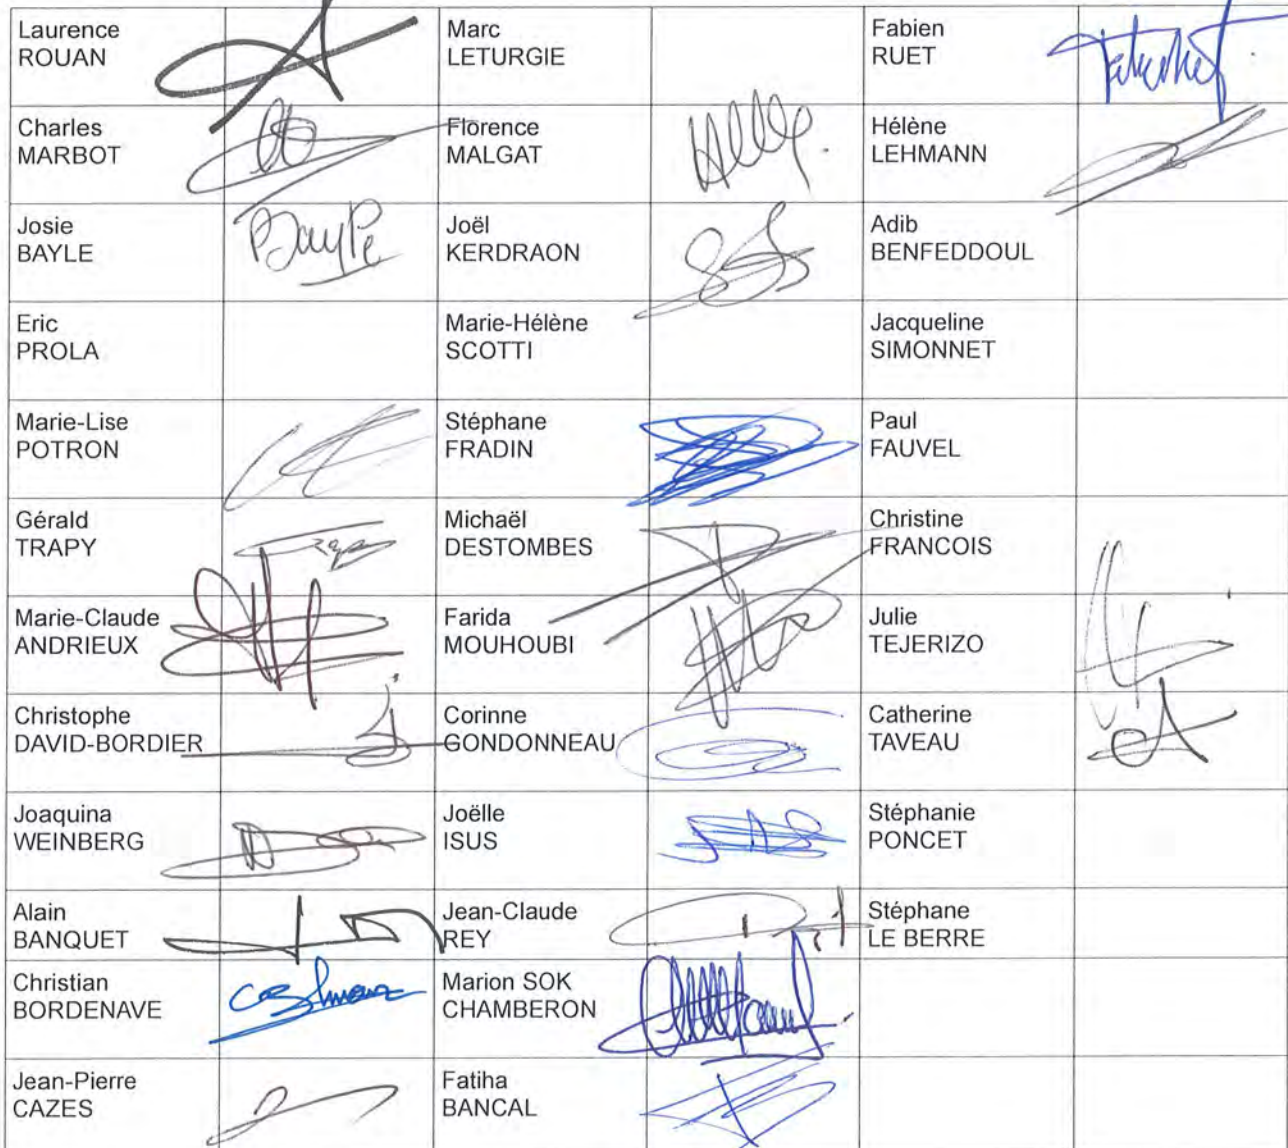 Laurence
ROUAN
Marc
LETURGIE
Fabien
RUET
Charles
MARBOT
Florence
MALGAT
Hélène
LEHMANN
Josie
BAYLE
Joël
KERDRAON
Adib
BENFEDDOUL
Eric
PROLA
Marie-Hélène
SCOTTI
Jacqueline
SIMONNET
Marie-Lise
POTRON
Stéphane
FRADIN
Paul
FAUVEL
Gérald
TRAPY
Michaël
DESTOMBES
Christine
FRANCOIS
Marie-Claude
ANDRIEUX
Farida
MOUHOUBI
Julie
TEJERIZO
Christophe
DAVID-BORDIER
Corinne
GONDONNEAU
Catherine
TAVEAU
Joaquina
WEINBERG
Joëlle
ISUS
Stéphanie
PONCET
Alain
BANQUET
Jean-Claude
REY
Stéphane
LE BERRE
Christian
BORDENAVE
Marion SOK
CHAMBERON
Jean-Pierre
CAZES
Fatiha
BANCAL